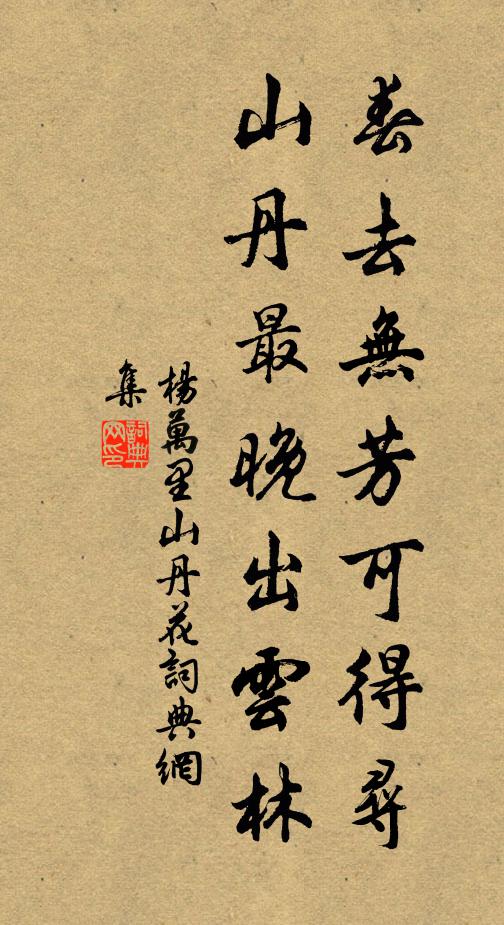 春去無芳可得尋
山丹最晚出雲林
楊萬里山丹花詞典網
集
詞典
网印